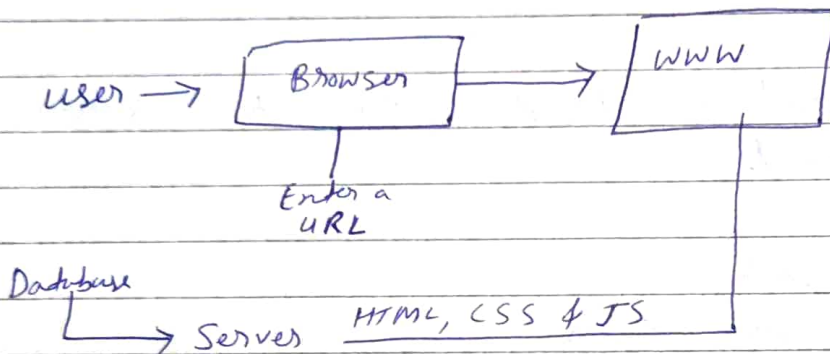 user
Browser
WWW
Enter a
URL
Database
Server
HTML, CSS & JS